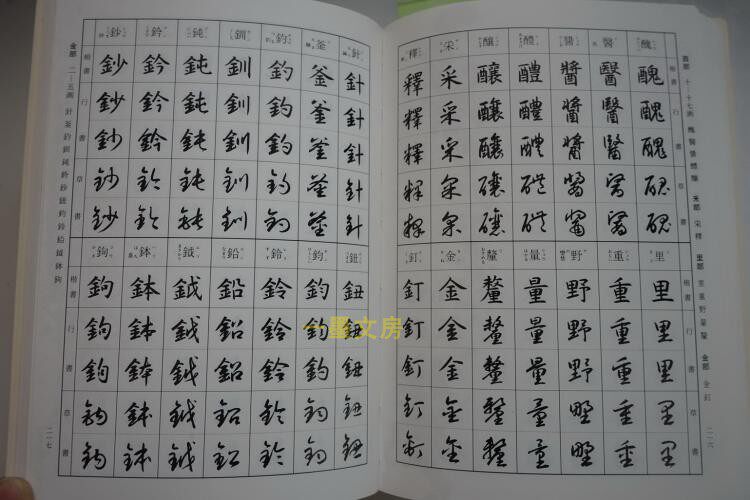 酉部 十—十七画 醜 醫 醬 醴 釀 釆部 采 釋 里部 里 重 野 量 釐 金部 金 釘
二一六
楷書 行書 草書
醜 醜 醜 醜 醜 醜
醫 醫 醫 醫 醫 醫
醬 醬 醬 醬 醬 醬
醴 醴 醴 醴 醴 醴
釀 釀 釀 釀 釀 釀
采 采 采 采 采 采
釋 釋 釋 釋 釋 釋
楷書 行書 草書
里 里 里 里 里 里
重 重 重 重 重 重
野 野 野 野 野 野
量 量 量 量 量 量
釐 釐 釐 釐 釐 釐
金 金 金 金 金 金
釘 釘 釘 釘 釘 釘
針 針 針 針 針 針
釜 釜 釜 釜 釜 釜
釣 釣 釣 釣 釣 釣
釧 釧 釧 釧 釧 釧
鈍 鈍 鈍 鈍 鈍 鈍
鈐 鈐 鈐 鈐 鈐 鈐
鈔 鈔 鈔 鈔 鈔 鈔
楷書 行書 草書
鈕 鈕 鈕 鈕 鈕 鈕
鈞 鈞 鈞 鈞 鈞 鈞
鈴 鈴 鈴 鈴 鈴 鈴
鉛 鉛 鉛 鉛 鉛 鉛
鉞 鉞 鉞 鉞 鉞 鉞
鉢 鉢 鉢 鉢 鉢 鉢
鉤 鉤 鉤 鉤 鉤 鉤
楷書 行書 草書
金部 二—五画 針 釜 釣 釧 鈍 鈐 鈔 鈕 鈞 鈴 鉛 鉞 鉢 鉤
二一七
一墨文房